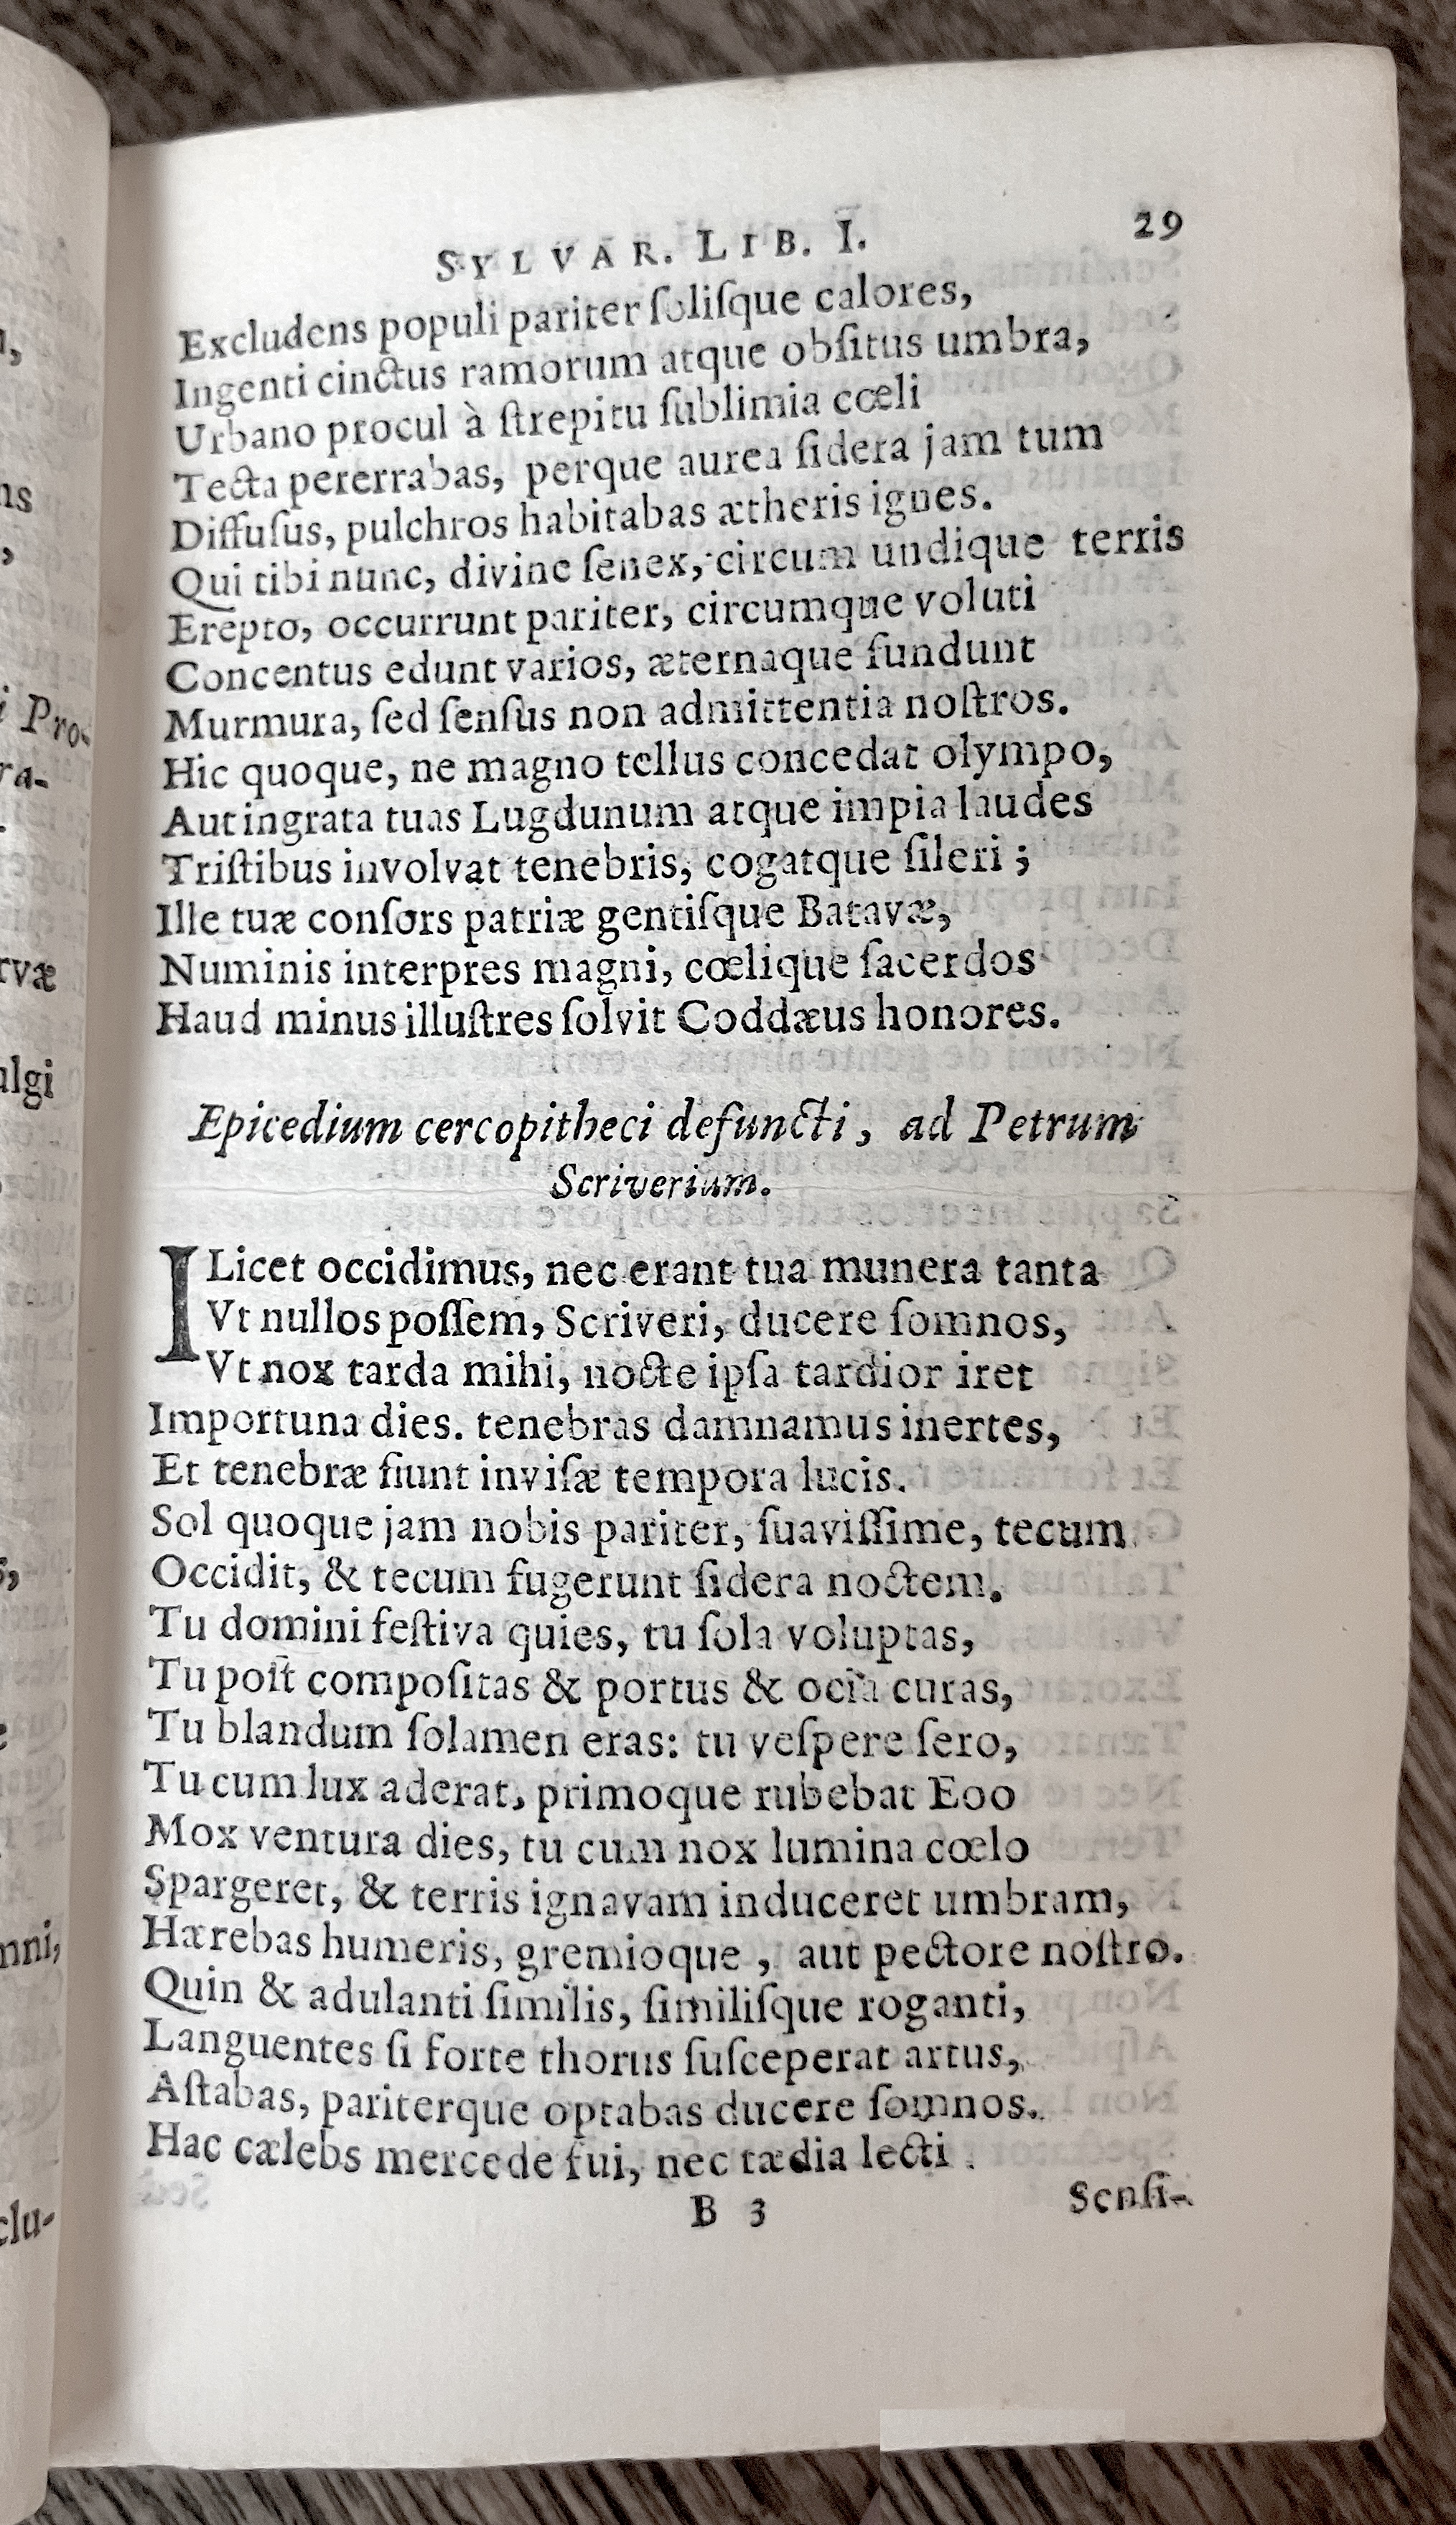 SYLVAR. LIB. I. 29
Excludens populi pariter ſoliſque calores,
Ingenti cinctus ramorum atque obſitus umbra,
Urbano procul à ſtrepitu ſublimia cœli
Tecta pererrabas, perque aurea ſidera jam tum
Diffuſus, pulchros habitabas ætheris ignes.
Qui tibi nunc, divine ſenex, circum undique terris
Erepto, occurrunt pariter, circumque voluti
Concentus edunt varios, æternaque fundunt
Murmura, ſed ſenſus non admittentia noſtros.
Hic quoque, ne magno tellus concedat olympo,
Aut ingrata tuas Lugdunum atque impia laudes
Triſtibus involvat tenebris, cogatque ſileri;
Ille tuæ conſors patriæ gentiſque Batavæ,
Numinis interpres magni, cœlique ſacerdos
Haud minus illuſtres ſolvit Coddæus honores.
Epicedium cercopitheci defuncti, ad Petrum
Scriverium.
ILicet occidimus, nec erant tua munera tanta
Vt nullos poſſem, Scriveri, ducere ſomnos,
Vt nox tarda mihi, nocte ipſa tardior iret
Importuna dies. tenebras damnamus inertes,
Et tenebræ fiunt inviſæ tempora lucis.
Sol quoque jam nobis pariter, ſuaviſſime, tecum
Occidit, & tecum fugerunt ſidera noctem.
Tu domini feſtiva quies, tu ſola voluptas,
Tu poſt compoſitas & portus & ocia curas,
Tu blandum ſolamen eras: tu veſpere ſero,
Tu cum lux aderat, primoque rubebat Eoo
Mox ventura dies, tu cum nox lumina cœlo
Spargeret, & terris ignavam induceret umbram,
Hærebas humeris, gremioque, aut pectore noſtro.
Quin & adulanti ſimilis, ſimiliſque roganti,
Languentes ſi forte thorus ſuſceperat artus,
Aſtabas, pariterque optabas ducere ſomnos.
Hac cælebs mercede fui, nec tædia lecti
B 3 Senſi-